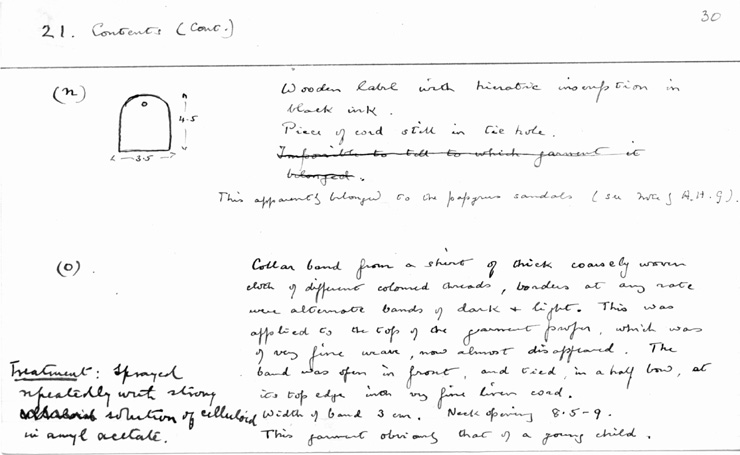 30
21. Contents (Cont.)
(n)
4.5
3.5
Wooden label with hieratic inscription in
black ink.
Piece of cord still in tie hole.
Impossible to tell to which garment it
belonged.
This apparently belonged to the papyrus sandals (see note of A.H.G).
(o)
Collar band from a shirt of thick coarsely woven
cloth of different coloured threads, borders at any rate
were alternate bands of dark + light. This was
applied to the top of the garment proper, which was
of very fine weave, now almost disappeared. The
band was open in front, and tied, in a half bow, at
its top edge with very fine linen cord.
Width of band 3 cm. Neck opening 8.5-9.
This garment obviously that of a young child.
Treatment: Sprayed
repeatedly with strong
solution of celluloid
in amyl acetate.